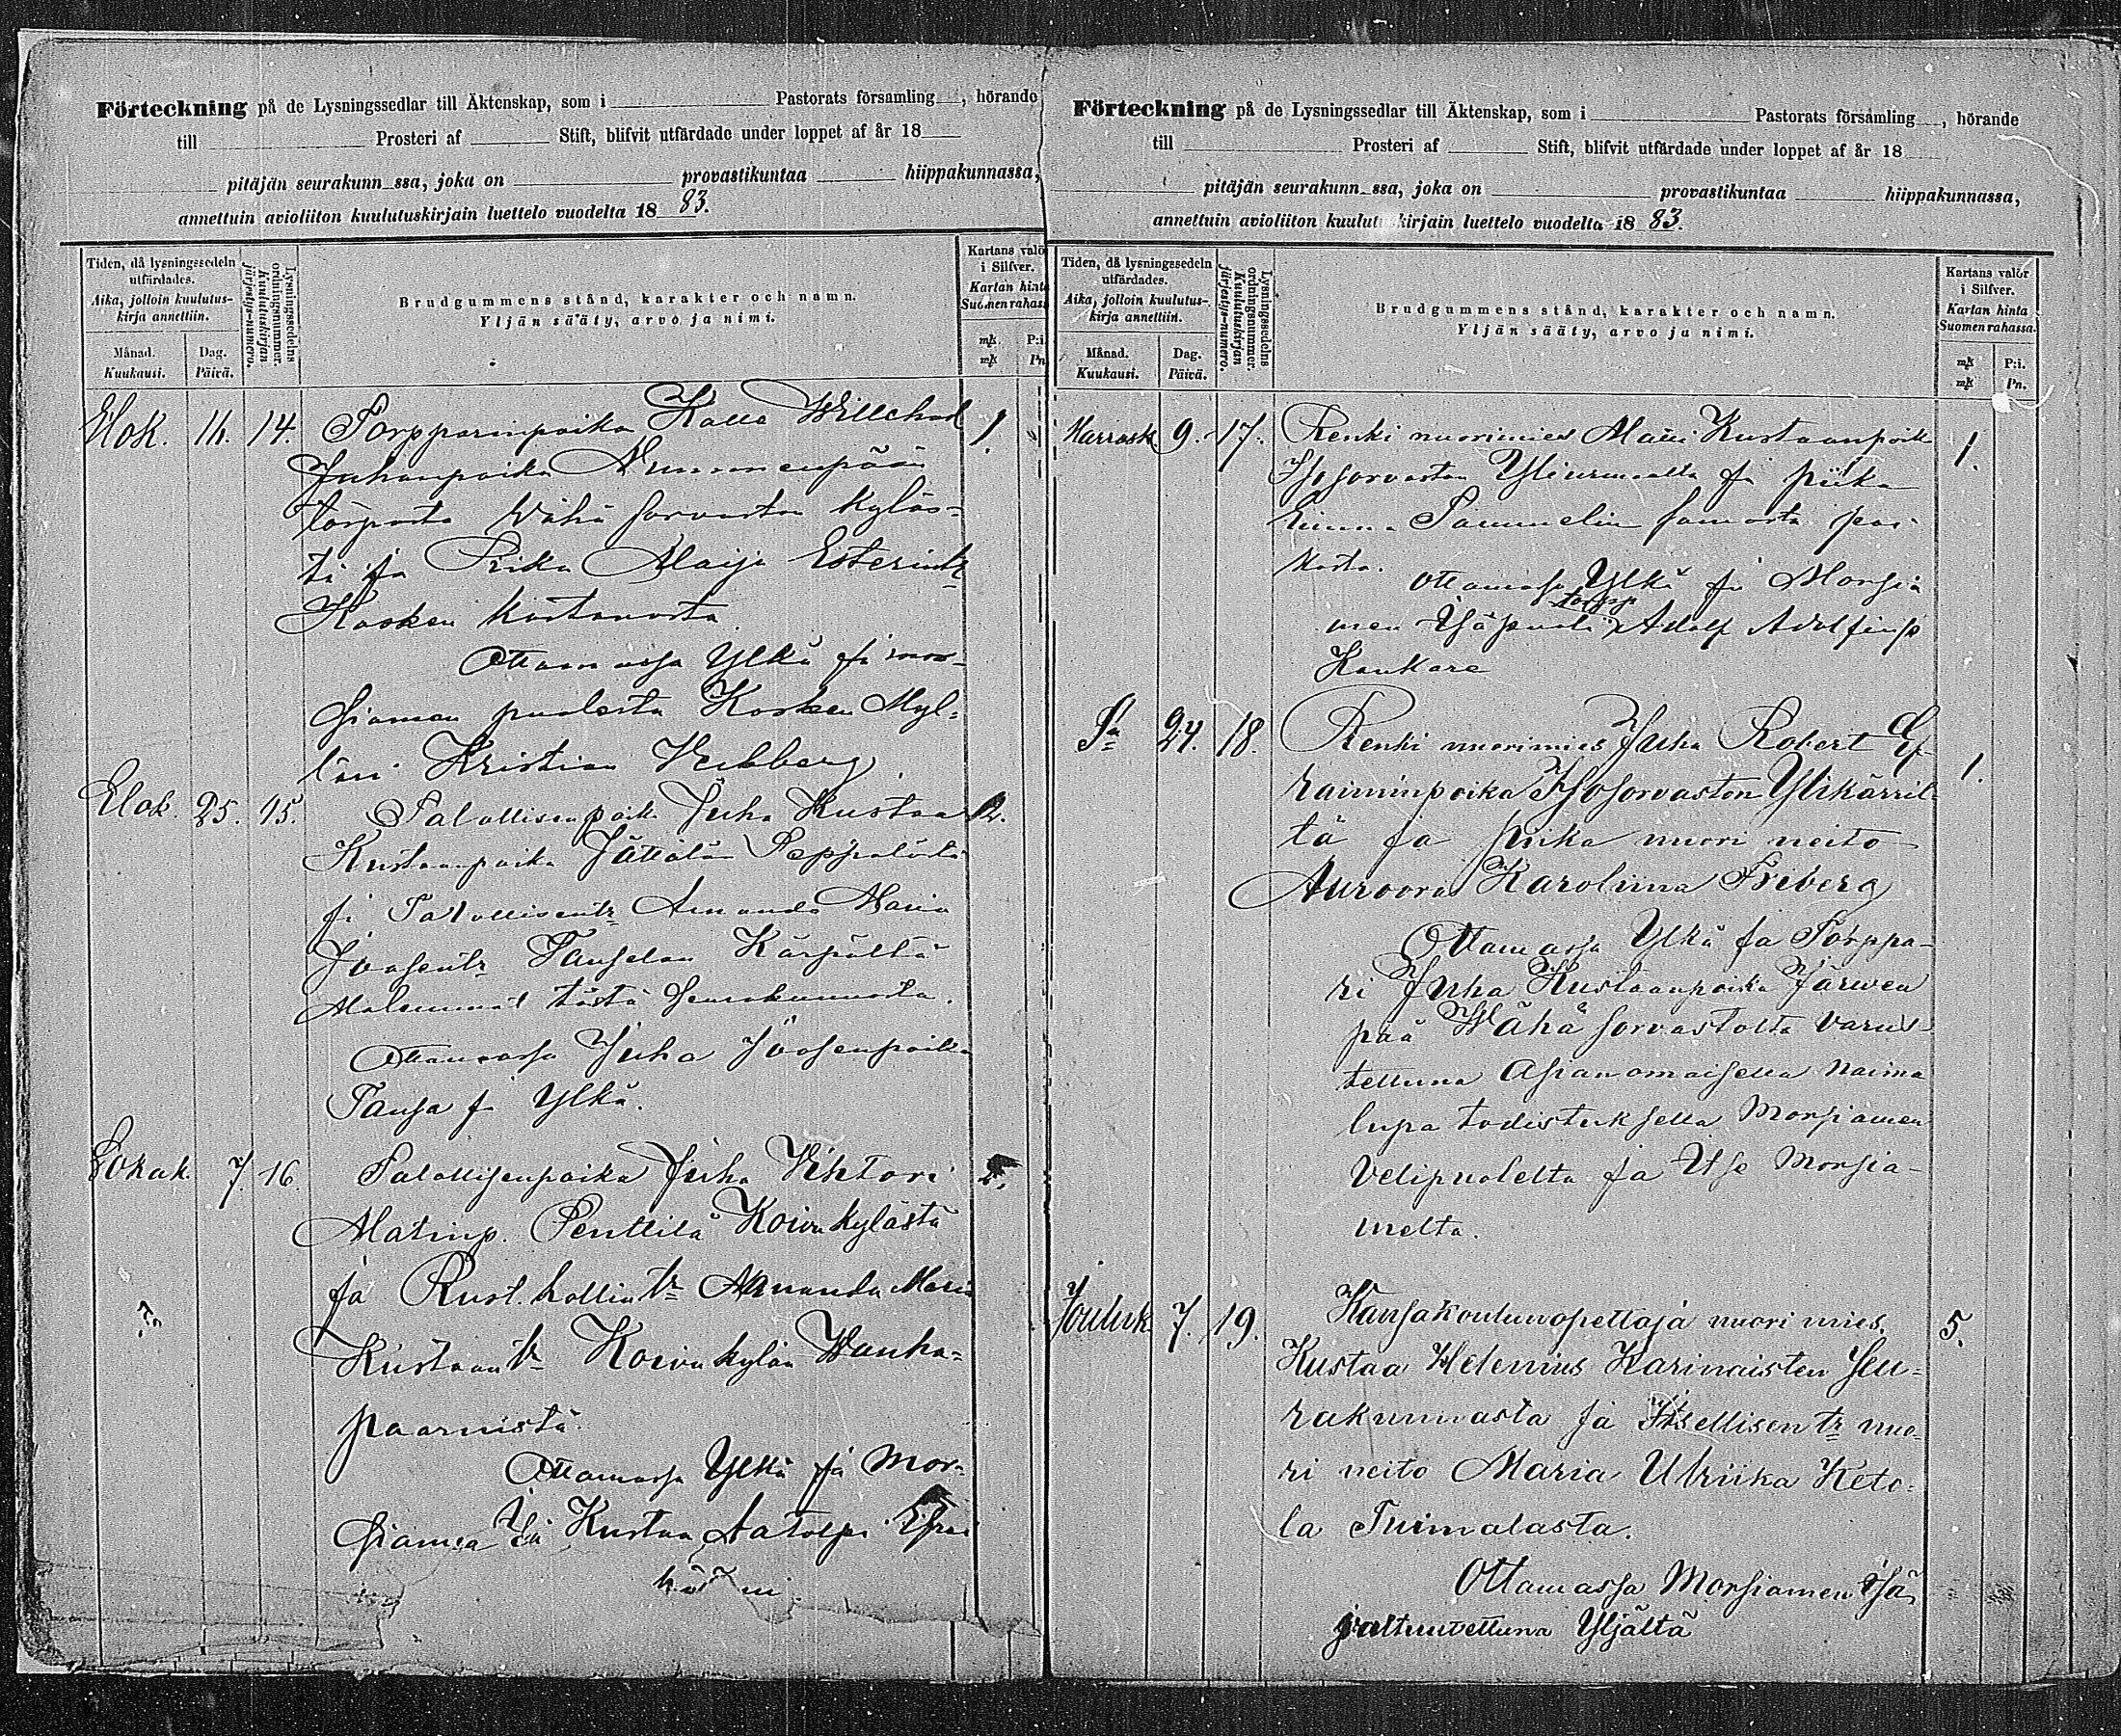 Förteckning på de Lysningssedlar till Äktenskap, som i Pastorats församling, hörande
till Prosteri af Stift, blifvit utfärdade under loppet af år 18
pitäjän seurakunn ssa, joka on provastikuntaa hiippakunnassa,
annettuin avioliiton kuulutuskirjain luettelo vuodelta 1883.
Tiden, då lysningssedeln
utfärdades.
Aika, jolloin kuulutus-
kirja annettiin.
Månad.
Kuukausi.
Dag.
Päivä.
Lysningssedelns
ordningsnummer.
Kuulutuskirjan
järjestys-numero.
Brudgummens stånd, karakter och namn.
Yljän sääty, arvo ja nimi.
Kartans valör
i Silfver.
Kartan hinta
Suomen rahassa
mk. P:i.
mk Pn
Elok. 11. 14. Torpparinpoika Kalle Willehad 1.
Juhanpoika Nummenpään
torpasta Wähä sorvaston kyläs-
tä ja Piika Maija Esterintr
Kosken kartanosta
Ottamassa Ylkä ja mor-
siamen puolesta Kosken Myl-
läri Kristian
Elok. 25. 15. Talollisenpoika Juha Kustaa 2.
Kustaanpoika
ja Talollisentr Amanda Maria
Tauselan Kärpältä
Molemmat tästä Seurakunnasta.
Ottamassa Juha
Tausa ja Ylkä.
Lokak. 7. 16. Talollisenpoika Juha Vihtori
Matinp. Penttilä Koivukylästä
ja Rust. hollin tr Amanda Maria
Kustaan tr Koivukylän Wanha-
paarnistä
Ottamassa Ylkä ja Mor-
siamen Isä Kustaa
Förteckning på de Lysningssedlar till Äktenskap, som i Pastorats församling, hörande
till Prosteri af Stift, blifvit utfärdade under loppet af år 18
pitäjän seurakunn ssa, joka on provastikuntaa hiippakunnassa,
annettuin avioliiton kuulutuskirjain luettelo vuodelta 1883.
Tiden, då lysningssedeln
utfärdades.
Aika, jolloin kuulutus-
kirja annettiin.
Månad.
Kuukausi.
Dag.
Päivä.
Lysningssedelns
ordningsnummer.
Kuulutuskirjan
järjestys-numero.
Brudgummens stånd, karakter och namn.
Yljän sääty, arvo ja nimi.
Kartans valör
i Silfver.
Kartan hinta
Suomen rahassa.
mk P:i.
mk Pn.
Marrask 9. 17. Renki nuorimies Matti Kustaanpoik 1.
Isosorvaston ja piika
Tammelin
kasta.
Ottamassa Ylkä ja Morsia
torpp
men Isäpuoli Adolf Adolfinp
Kankare
Sa 24. 18. Renki nuorimies Juha Robert Ef 1.
raiminpoika Isosorvaston Ylikärril-
tä ja piika nuori neito
Auroora Karoliina Friberg
Ottamassa Ylkä ja Torppa-
ri Juha Kustaanpoika Järwen
pää Wähä sorvastolta varus
tettuna Asianomaisella naima
lupa todistuksella Morsiamen
Velipuolelta ja Itse Morsia-
melta.
Jouluk. 7. 19. Kansakoulunopettaja nuori mies. 5.
Kustaa Helenius Karinaisten Seu-
rakunnasta ja Itsellisen tr nuo-
ri neito Maria Ulriika Keto-
la Tuimalasta.
Ottamassa Morsiamen Isä
valtuutettuna Yljältä